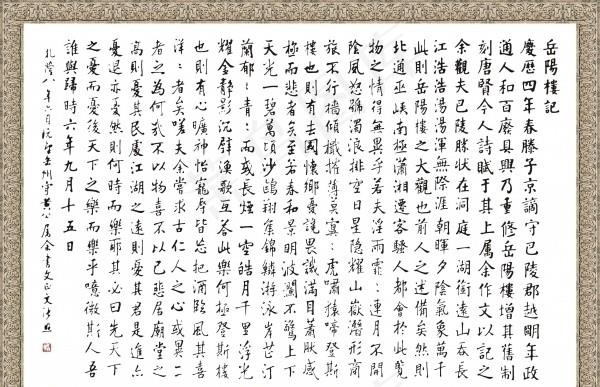 岳陽樓記
慶曆四年春滕子京謫守巴陵郡越明年政
通人和百廢具興乃重修岳陽樓增其舊制
刻唐賢今人詩賦于其上屬余作文以記之
余觀夫巴陵勝狀在洞庭一湖銜遠山吞長
江浩浩湯湯渾無際涯朝暉夕陰氣象萬千
此則岳陽樓之大觀也前人之述備矣然則
北通巫峽南極瀟湘遷客騷人都會於此覽
物之情得無異乎若夫淫雨霏:連月不開
陰風怒號濁浪排空日星隱耀山嶽潛形商
旅不行檣傾楫摧薄莫冥:虎嘯猿啼登斯
樓也則有去國懷鄉憂讒畏譏滿目蕭然感
極而悲者矣至若春和景明波瀾不驚上下
天光一碧萬頃沙鷗翔集錦鱗游泳岸芷汀
蘭郁:青:而或長煙一空皓月千里浮光
耀金靜影沉璧漁歌互答此樂何極登斯樓
也則有心曠神怡寵辱皆忘把酒臨風其喜
洋:者矣嗟夫余嘗求古仁人之心或異二
者之為何哉不以物喜不以己悲居廟堂之
高則憂其民處江湖之遠則憂其君是進亦
憂退亦憂然則何時而樂耶其必曰先天下
之憂而憂後天下之樂而樂乎噫微斯人吾
誰與歸時六年九月十五日